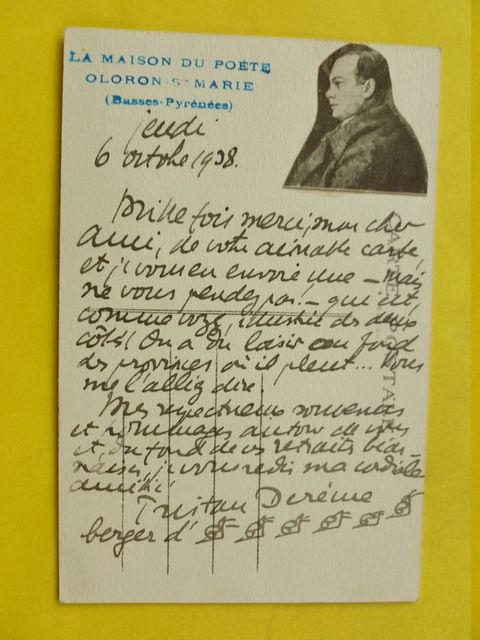 LA MAISON DU POÈTE
OLORON-Ste MARIE
(Basses-Pyrénées)
jeudi
6 octobre 1938.
Mille fois merci, mon cher
ami, de votre aimable carte,
et je vous en envoie une – mais
ne vous pendez pas! – qui est,
comme voyez, illustrée des deux
côtés! On a du loisir au fond
des provinces où il pleut... Vous
me l'allez dire.
Mes respectueux souvenirs
et hommages autour de vous
et, du fond de vos retraits béar-
naises, je vous redis ma cordiale
amitié!
Tristan Derème
berger d'
CARTE POSTALE